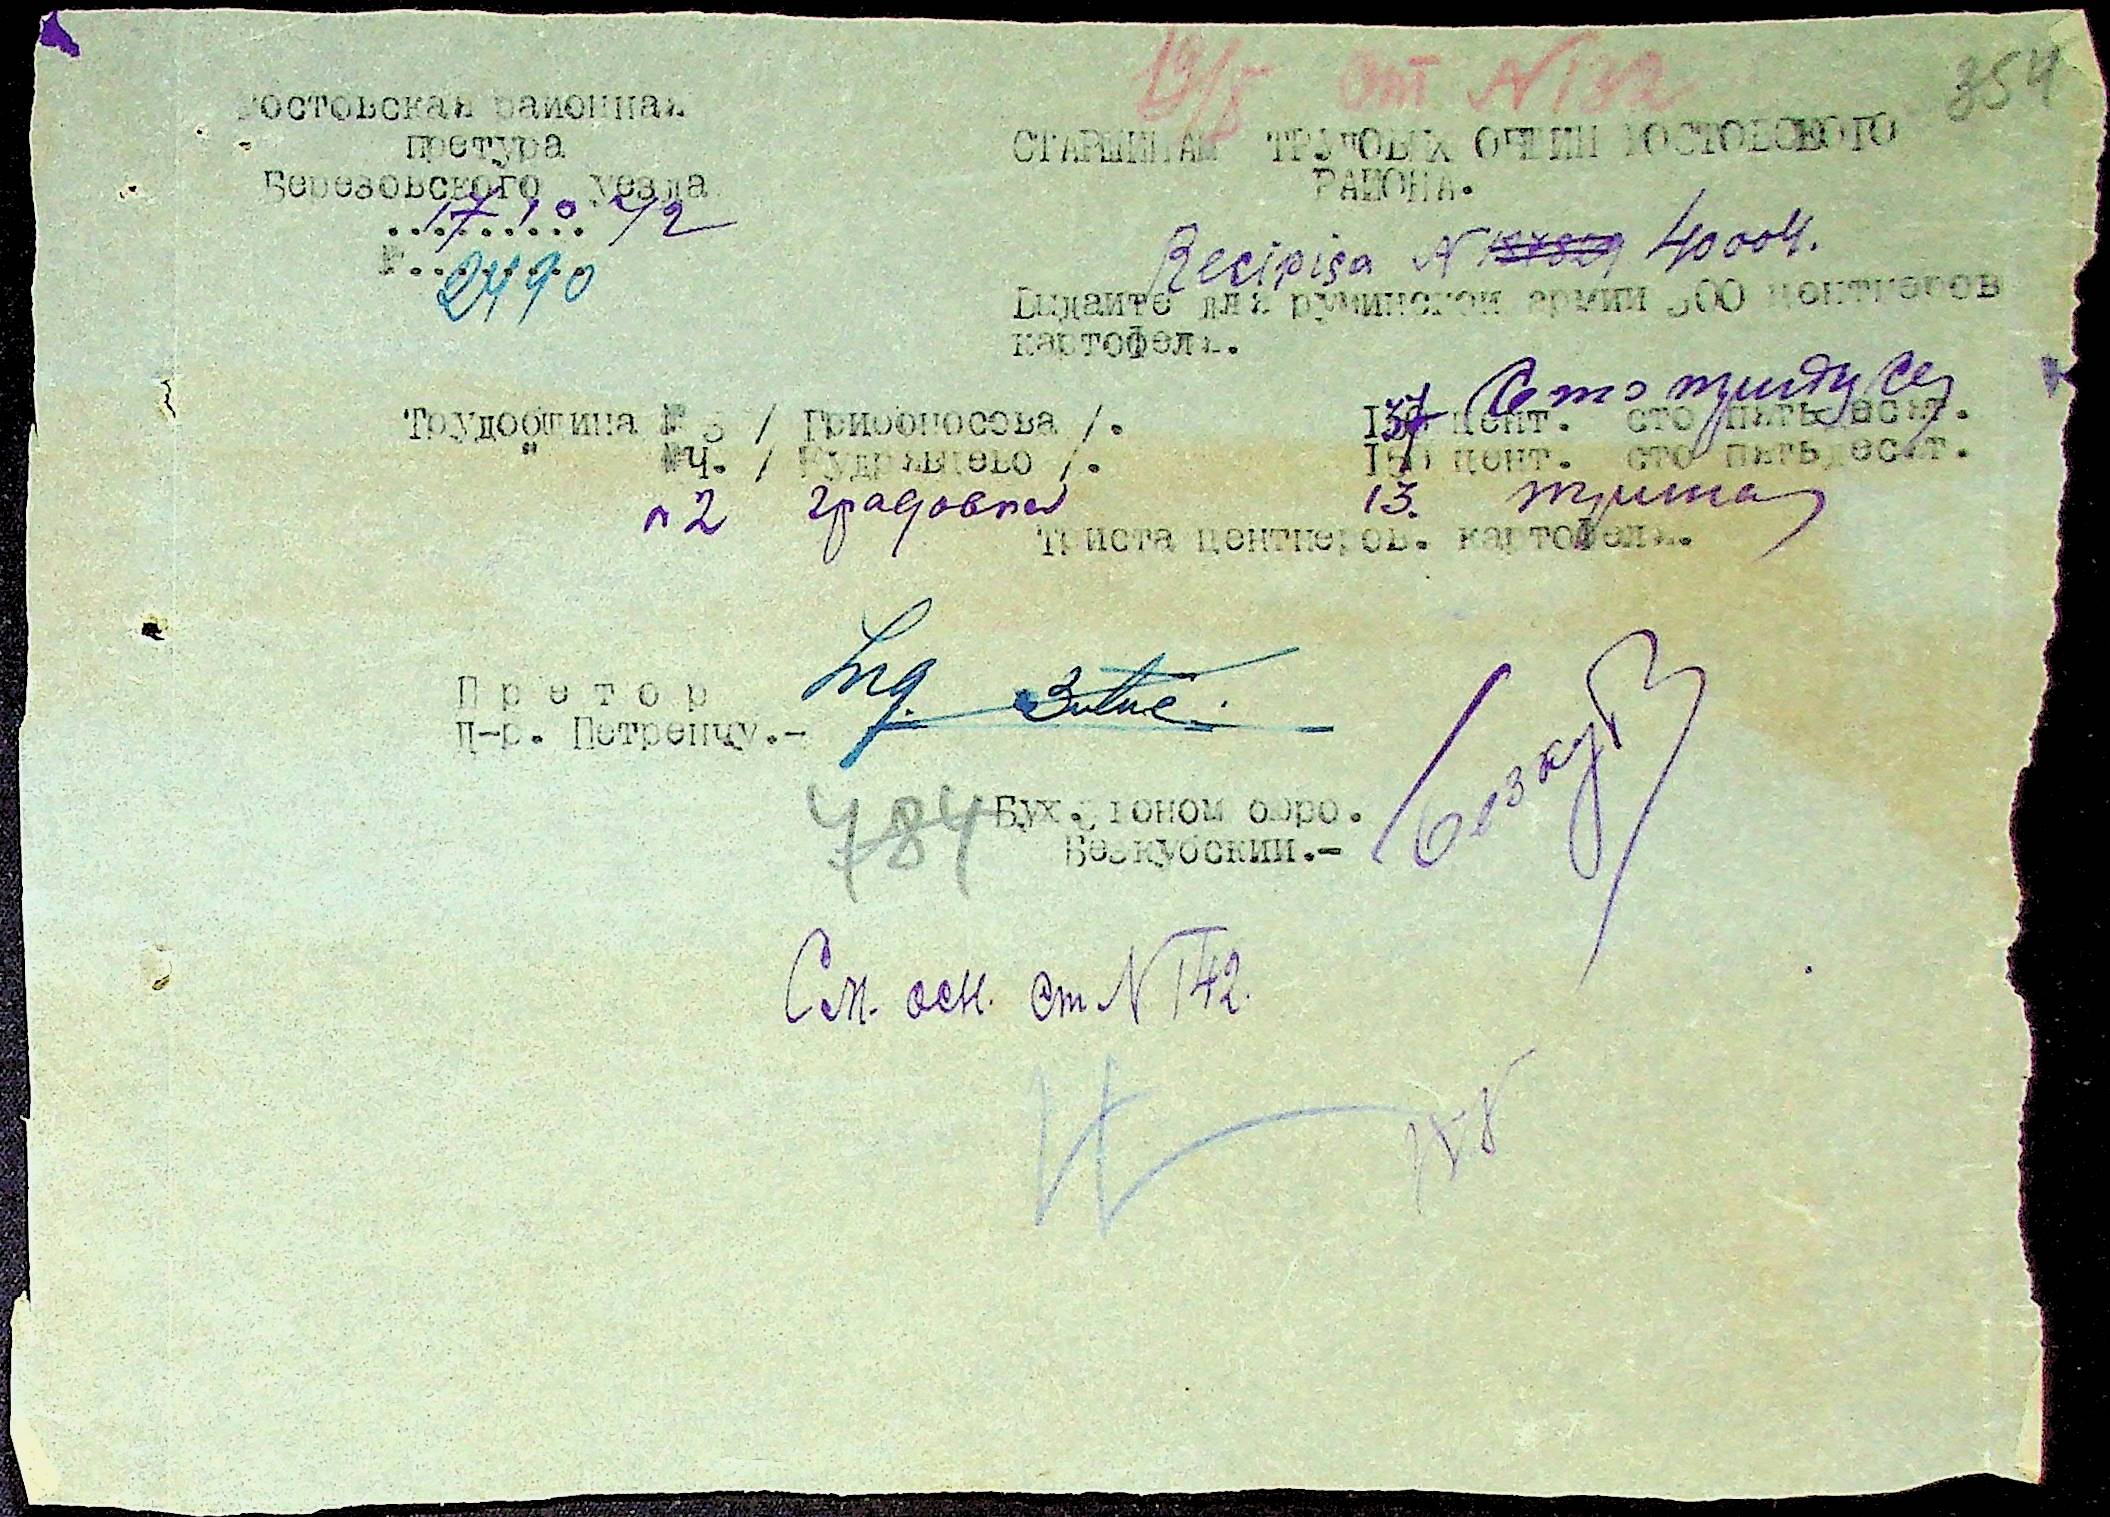 19/5 от N 132
354
Ростовская районная
претура
Березовского уезда
17 10 42
№ 2490
СТАРШИНАМ ТРУДОВЫХ ОБЩИН РОСТОВСКОГО
РАЙОНА.
Recipisa N 40004.
Выдайте для румынской армии 300 центнеров
картофеля.
Трудобщина № 3 / Грибоносова /. 137 цент. сто пятьдесят.
Сто тридц сем
" №4. / Кудрявцево /. 150 цент. сто пятьдесят.
n 2 градовка 13. трина
Триста центнеров. картофеля.
Претор
Д-р. Петренчу.-
Ing.
784
Бух. эконом бюро.
Безкубский.-
Безкуб
См. осн. ст N 142.